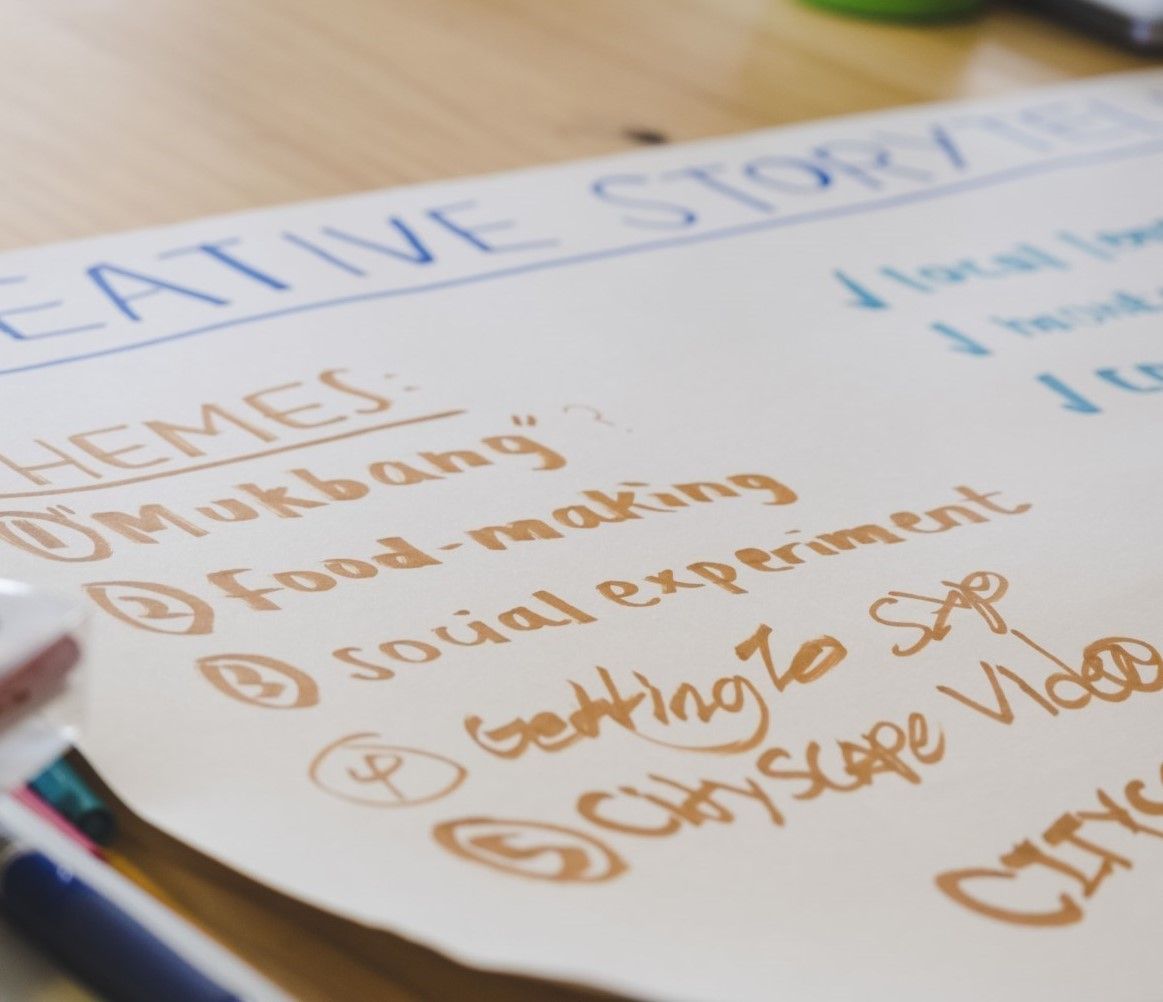 EATIVE STORYTEL
HEMES:
① "Mukbang" ?
② food-making
③ social experiment
④ Getting To
⑤ CityscApe Video
✓ local
✓
✓
CITYC